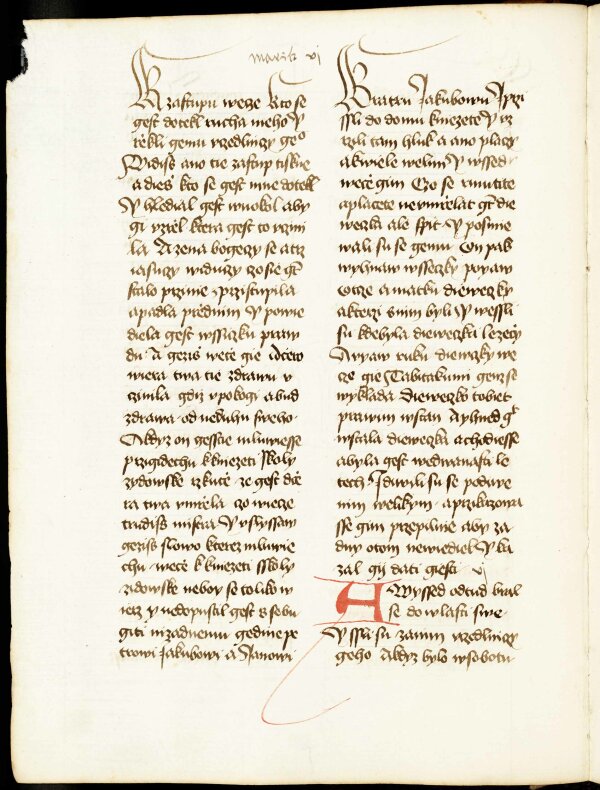 marzik vj
K zastupu wecze kto se
gest dotekl rucha meho y
rzekli gemu vczedlnyczy ge°
Widiss ano tie zastup tiskne
a dies kto se gest mne dotekl
Y hledial gest wuokol aby
gi vzrziel ktera gest to vczini
la A zena bogeczy se a trz
iasuczy widuczy czo sie gt
stalo przi nie przistupila
a padla przed nim y powie
diela gest wssiczku praw
du A geziss wece gie dczero
wiera twa tie zdrawu v
czinila gdiz v pokogi a bud
zdrawa od neduhu sweho
A kdyz on gesscie mluwiesse
przigidechu k kniezeti skoly
zydowske rzkuce ze gest dcze
ra twa vmrzela czo wiecze
trudiss mistra Y vslyssaw
geziss slowo kterez mluwie
chu wece k kniezeti sskoly
zidowske neboy se toliko w
ierz y nedopustil gest s sebu
giti nizadnemu gedine pe
trowi Jakubowi a Janowi
Bratru Jakubowu J przi
ssli do domu kniezete y vz
rzeli tam hluk a ano placzy
a kwiele welmi y wssed
wece gim Czo se rmutite
a placete nevmrzelat gt die
weczka ale spit Y posmie
wali su se gemu On pak
wyhnaw wsseczky pogaw
otcze a matku dieweczky
a kterzi s nim byli y wessli
su kdebyla dieweczka lezeczy
A vyaw ruku dieweczky we
cze gie Tabitakumi genz se
wyklada Dieweczko tobiet
prawim wstan A yhned gt
wstala dieweczka a chodiesse
a byla gest wedwanasti le
tech J diwili su se podiwe
nim welikym a przikazowa
sse gim przepilnie aby za
dny o tom newiediel Y ka
zal gij dati giesti vj
A Wyssed odtud bral
se do wlasti swe
Y ssli su za nim vczedlniczy
geho A kdyz bylo w sobotu